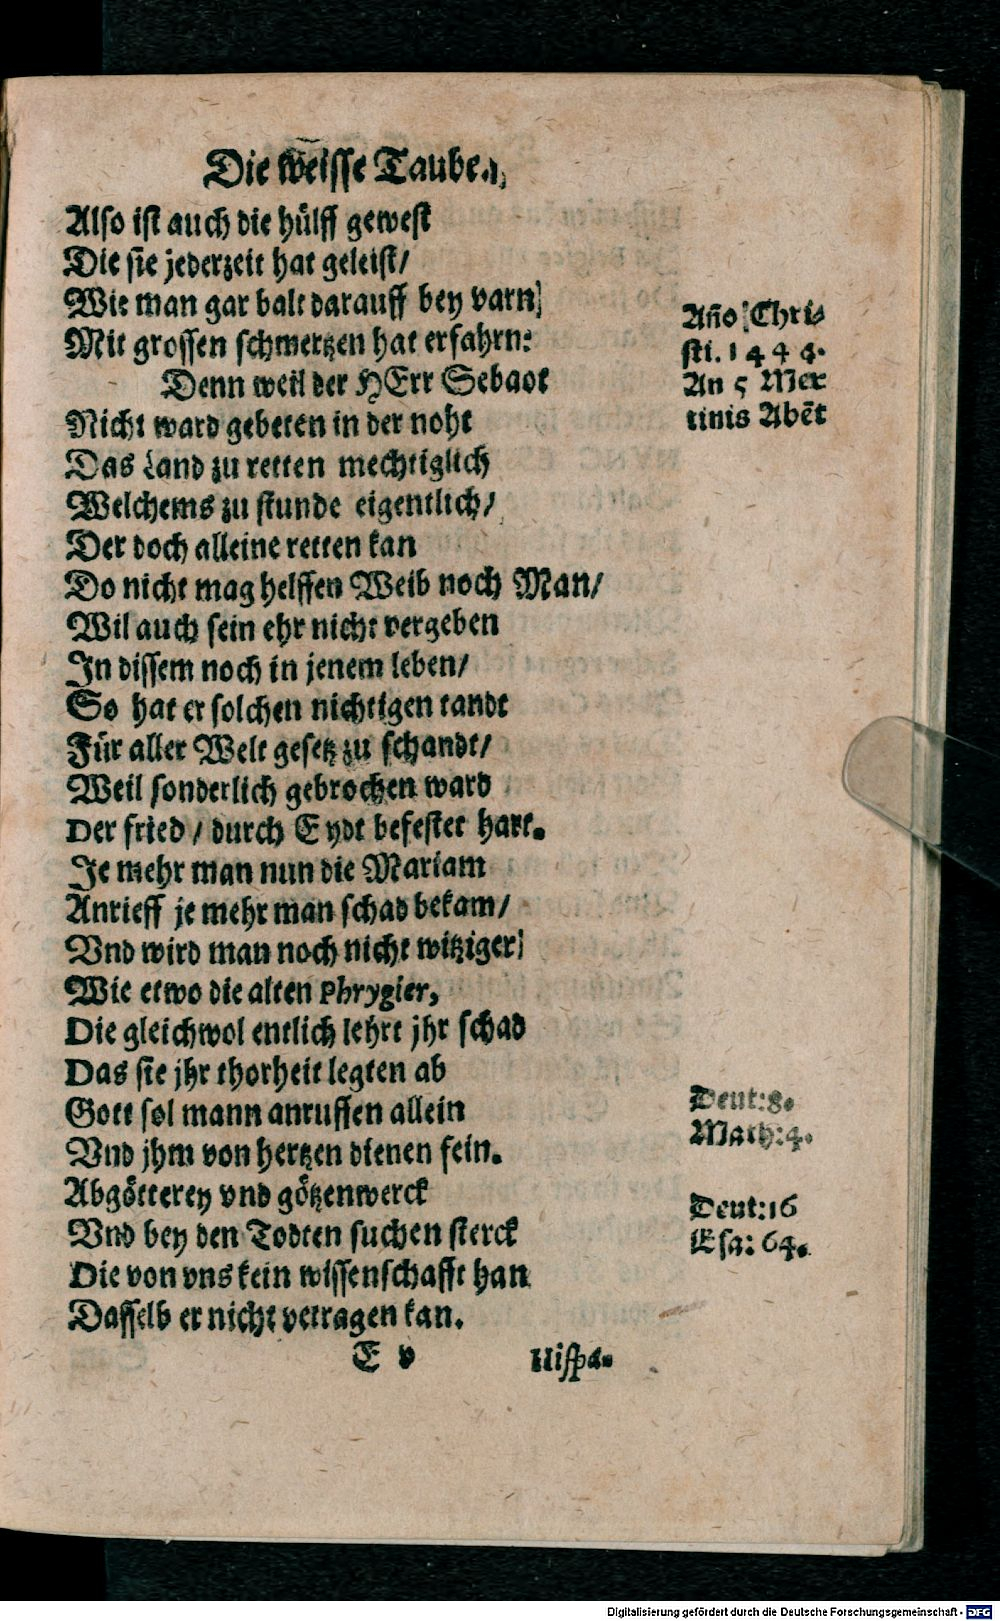 Die weisse Tauben,
Also ist auch die hülff gewest
Die sie jederzeit hat geleist/
Wie man gar balt darauff bey varn/
Mit grossen schmertzen hat erfahrn:
Denn weil der HErr Sebaot
Nicht ward gebeten in der noht
Das Land zu retten mechtiglich
Welchems zu stunde eigentlich/
Der doch alleine retten kan
Do nicht mag helffen Weib noch Man/
Wil auch sein ehr nicht vergeben
In dissem noch in jenem leben/
So hat er solchen nichtigen tandt
Für aller Welt gesetz zu schandt/
Weil sonderlich gebrochen ward
Der fried / durch Eydt befestet hart.
Je mehr man nun die Mariam
Anrieff je mehr man schad bekam/
Vnd wird man noch nicht witziger/
Wie etwo die alten Phrygier,
Die gleichwol entlich lehrt jhr schad
Das sie jhr thorheit legten ab
Gott sol mann anruffen allein
Vnd jhm von hertzen dienen fein.
Abgötterey vnd götzenwerck
Vnd bey den Todten suchen sterck
Die von vns kein wissenschafft han
Dasselb er nicht vetragen kan.
E v
Hispa-
Año Chri-
sti. 1444.
An S Mer
tinis Abēt
Deut:8.
Math:4.
Deut:16
Esa: 64.
Digitalisierung gefördert durch die Deutsche Forschungsgemeinschaft - DFG